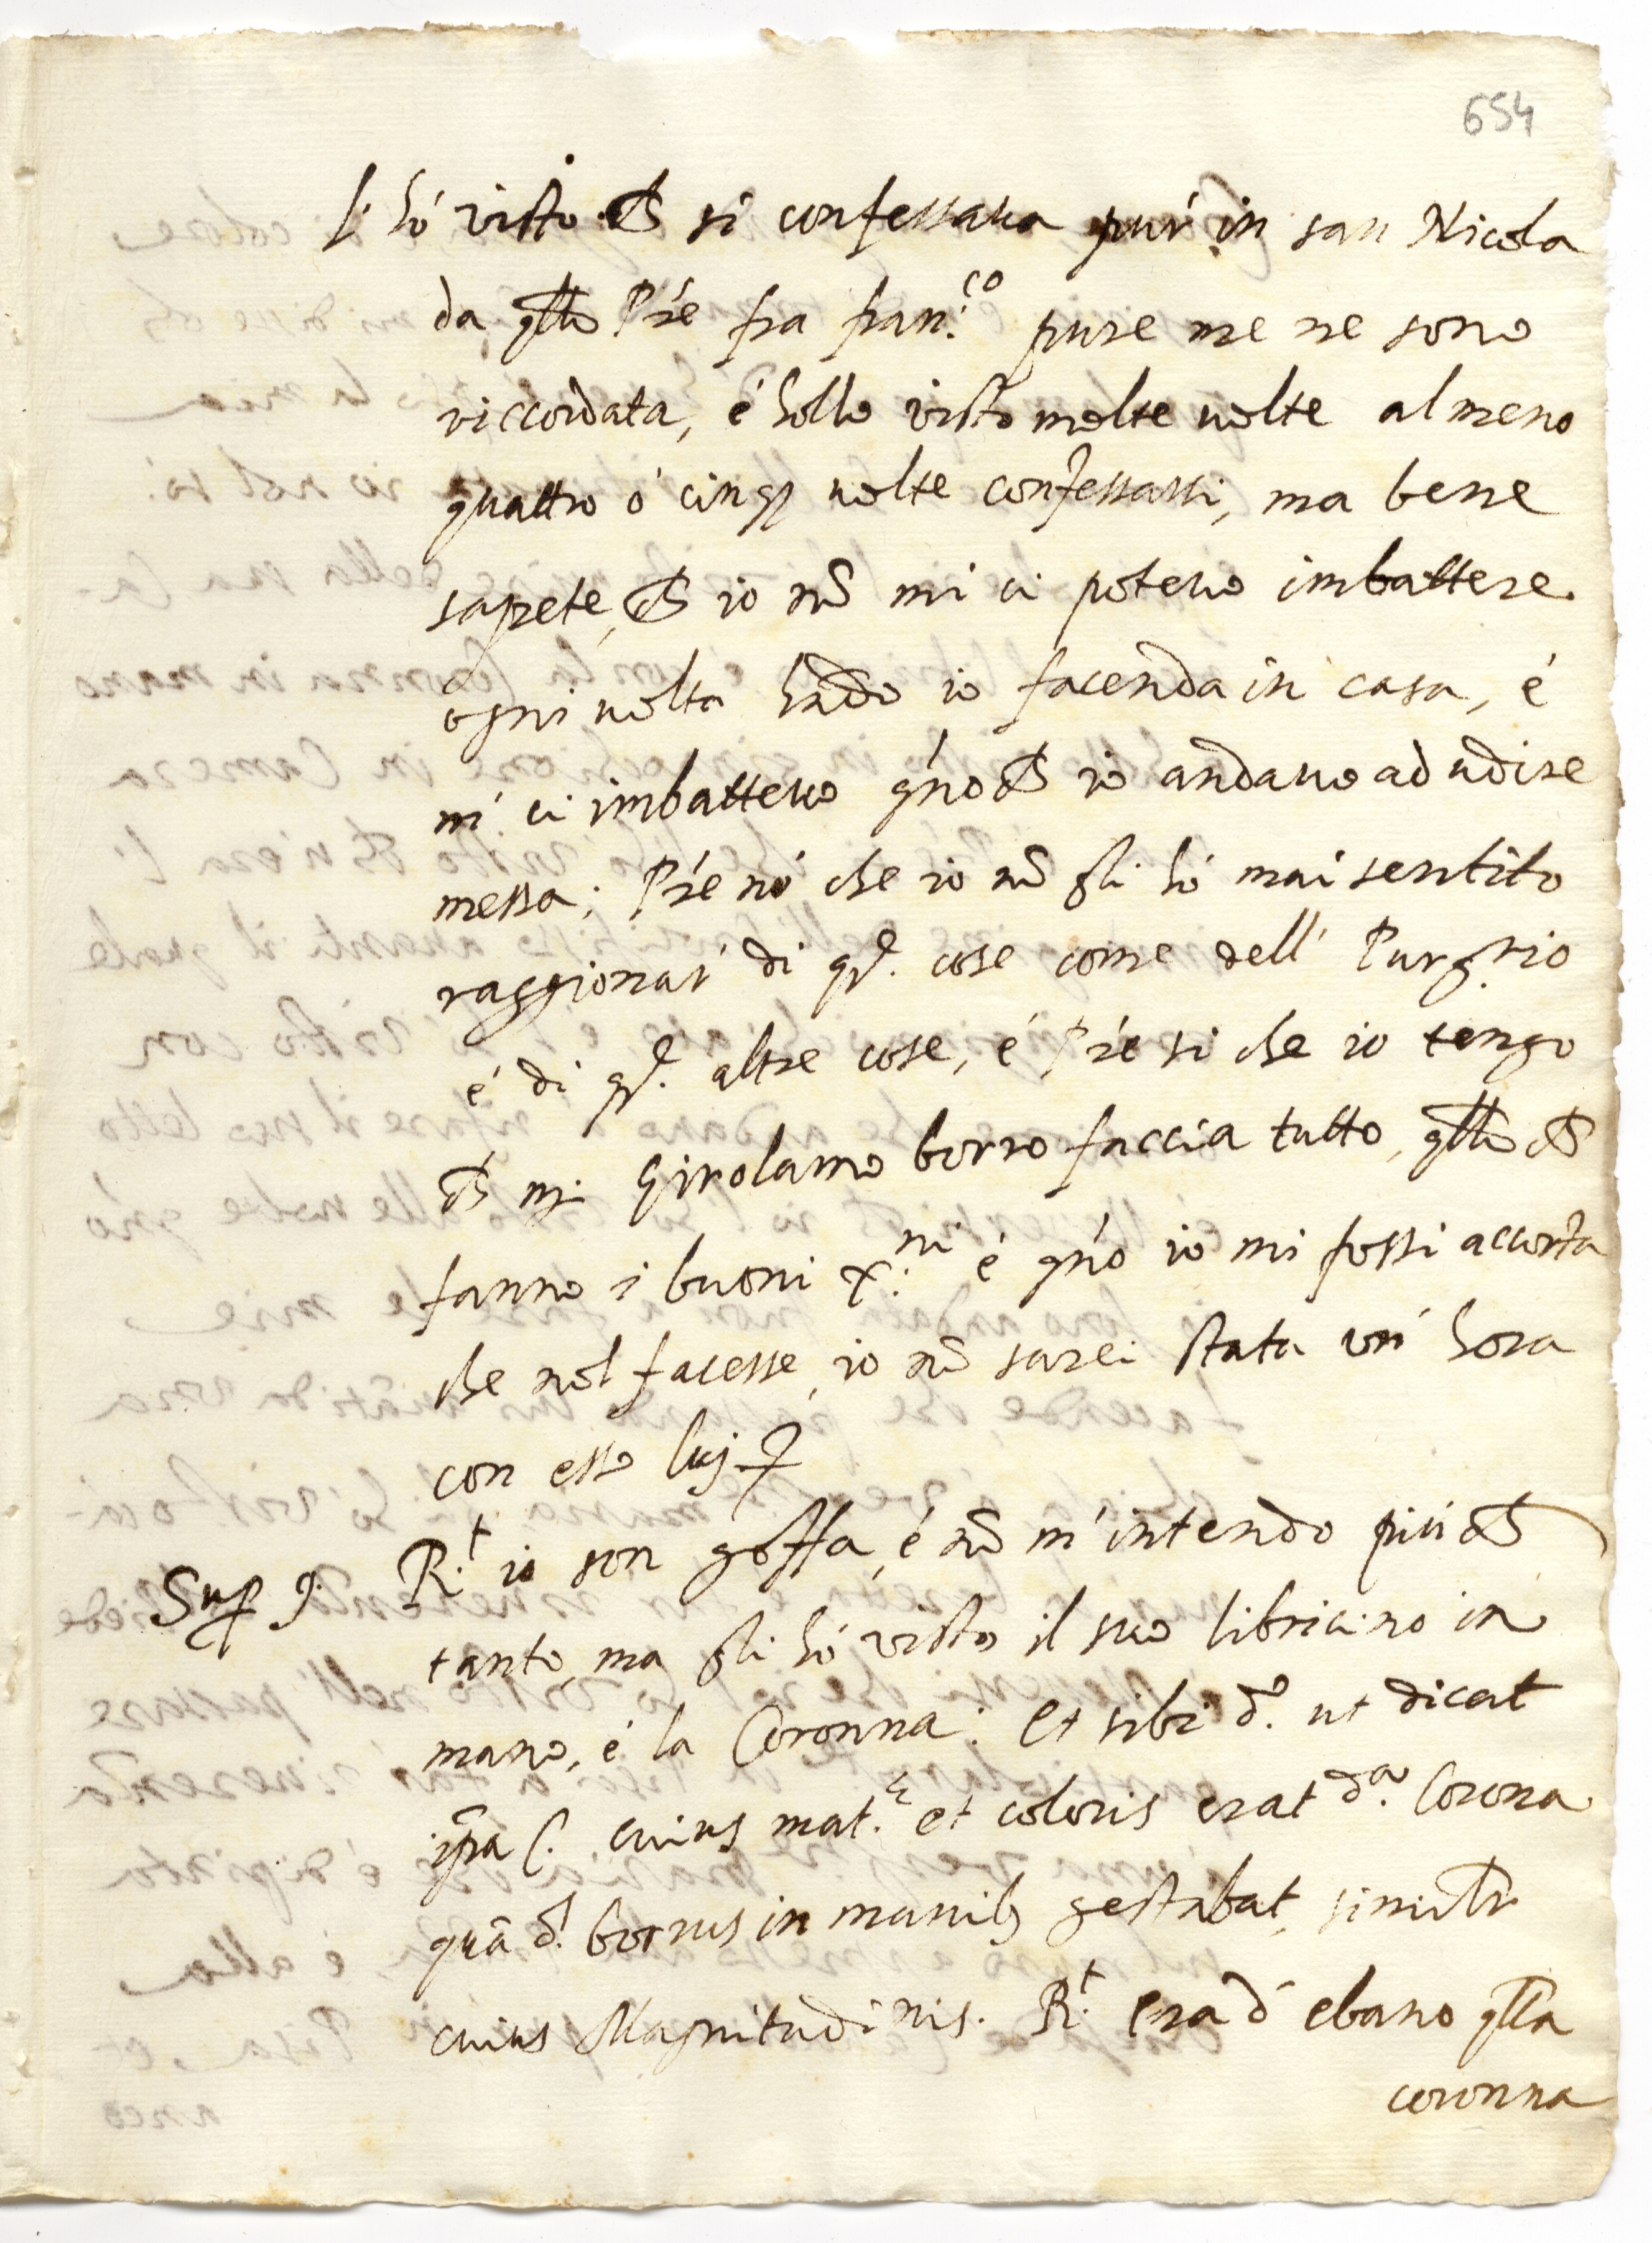 654
l'hó visto ch̃ si confessaua pur' in san Nicola
da q̃llo Pr̃e fra fran:co pure me ne sono
riccordata, é hollo visto molte uolte almeno
quattro ó cinq; uolte confessassi, ma bene
sapete, ch̃ io nõ mi ci poteuo imbattere
ogni uolta hãdo io facenda in casa, é
mi ci imbatteuo qño ch̃ io andauo ad udire
messa; Pr̃e nó che io nõ gli hó mai sentito
raggionar' di qste. cose come dell' Purg.rio
é di qste. altre cose, é Pr̃e si che io tengo
ch̃ mr. Girolamo borro faccia tutto, q̃llo ch̃
fanno i buoni x:ni é qño io mi fossi accorta
che nol facesse, io nõ sarei stata un' hora
con esso luj
Sup 9. R.t io son goffa, é nõ m'intendo piú ch̃
tanto, ma gli hó visto il suo libricino in
mano, é la Coronna: Et sibi d.o ut dicat
ip̃a C. cuius mat.e et coloris erat d.a Corona
quã d. borrus in manib; gestabat, similr̃
cuius Magnitudinis. R.t era d' ebano q̃lla
coronna